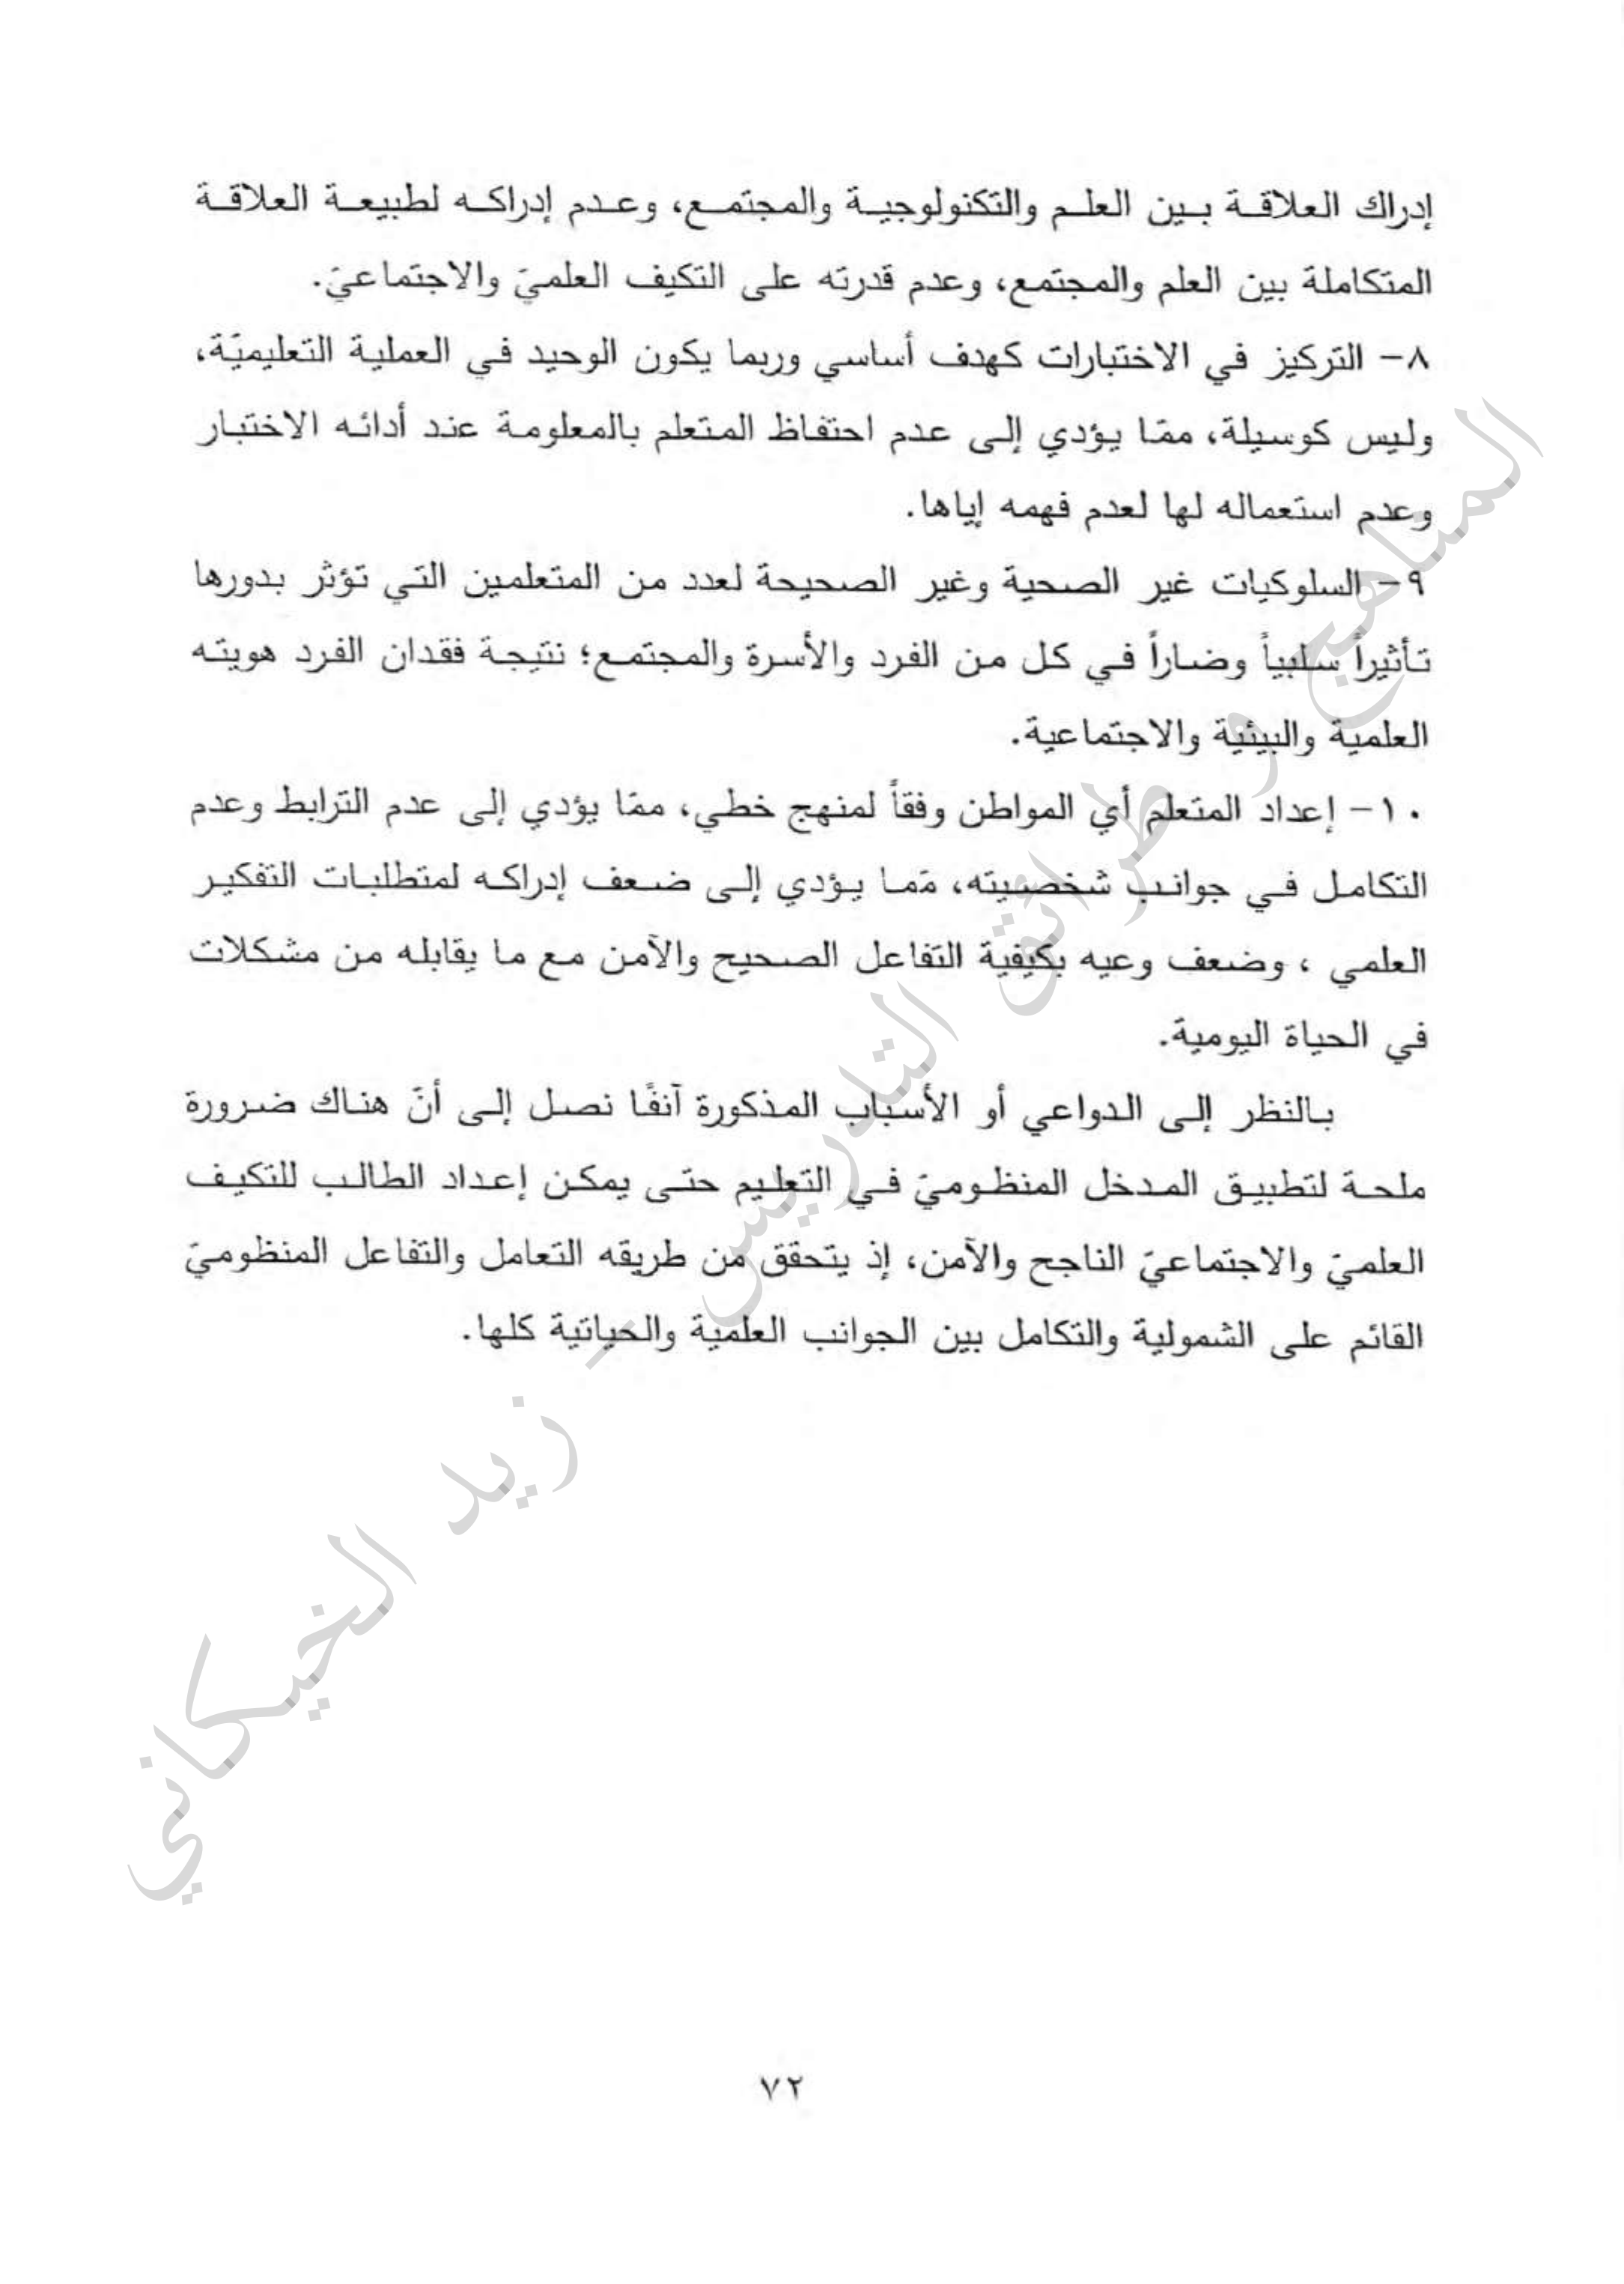 إدراك العلاقة بين العلم والتكنولوجية والمجتمع، وعدم إدراكه لطبيعة العلاقة
المتكاملة بين العلم والمجتمع، وعدم قدرته على التكيف العلميّ والاجتماعيّ.
٨- التركيز في الاختبارات كهدف أساسي وربما يكون الوحيد في العملية التعليميّة،
وليس كوسيلة، ممّا يؤدي إلى عدم احتفاظ المتعلم بالمعلومة عند أدائه الاختبار
وعدم استعماله لها لعدم فهمه إياها.
٩- السلوكيات غير الصحية وغير الصحيحة لعدد من المتعلمين التي تؤثر بدورها
تأثيراً سلبياً وضاراً في كل من الفرد والأسرة والمجتمع؛ نتيجة فقدان الفرد هويته
العلمية والبيئية والاجتماعية.
١٠- إعداد المتعلم أي المواطن وفقاً لمنهج خطي، ممّا يؤدي إلى عدم الترابط وعدم
التكامل في جوانب شخصيته، مّما يؤدي إلى ضعف إدراكه لمتطلبات التفكير
العلمي ، وضعف وعيه بكيفية التفاعل الصحيح والآمن مع ما يقابله من مشكلات
في الحياة اليومية.
بالنظر إلى الدواعي أو الأسباب المذكورة آنفًا نصل إلى أنّ هناك ضرورة
ملحة لتطبيق المدخل المنظوميّ في التعليم حتى يمكن إعداد الطالب للتكيف
العلميّ والاجتماعيّ الناجح والآمن، إذ يتحقق من طريقه التعامل والتفاعل المنظوميّ
القائم على الشمولية والتكامل بين الجوانب العلمية والحياتية كلها.
المناهج و طرائق التدريس - زيد الخيكاني
٧٢